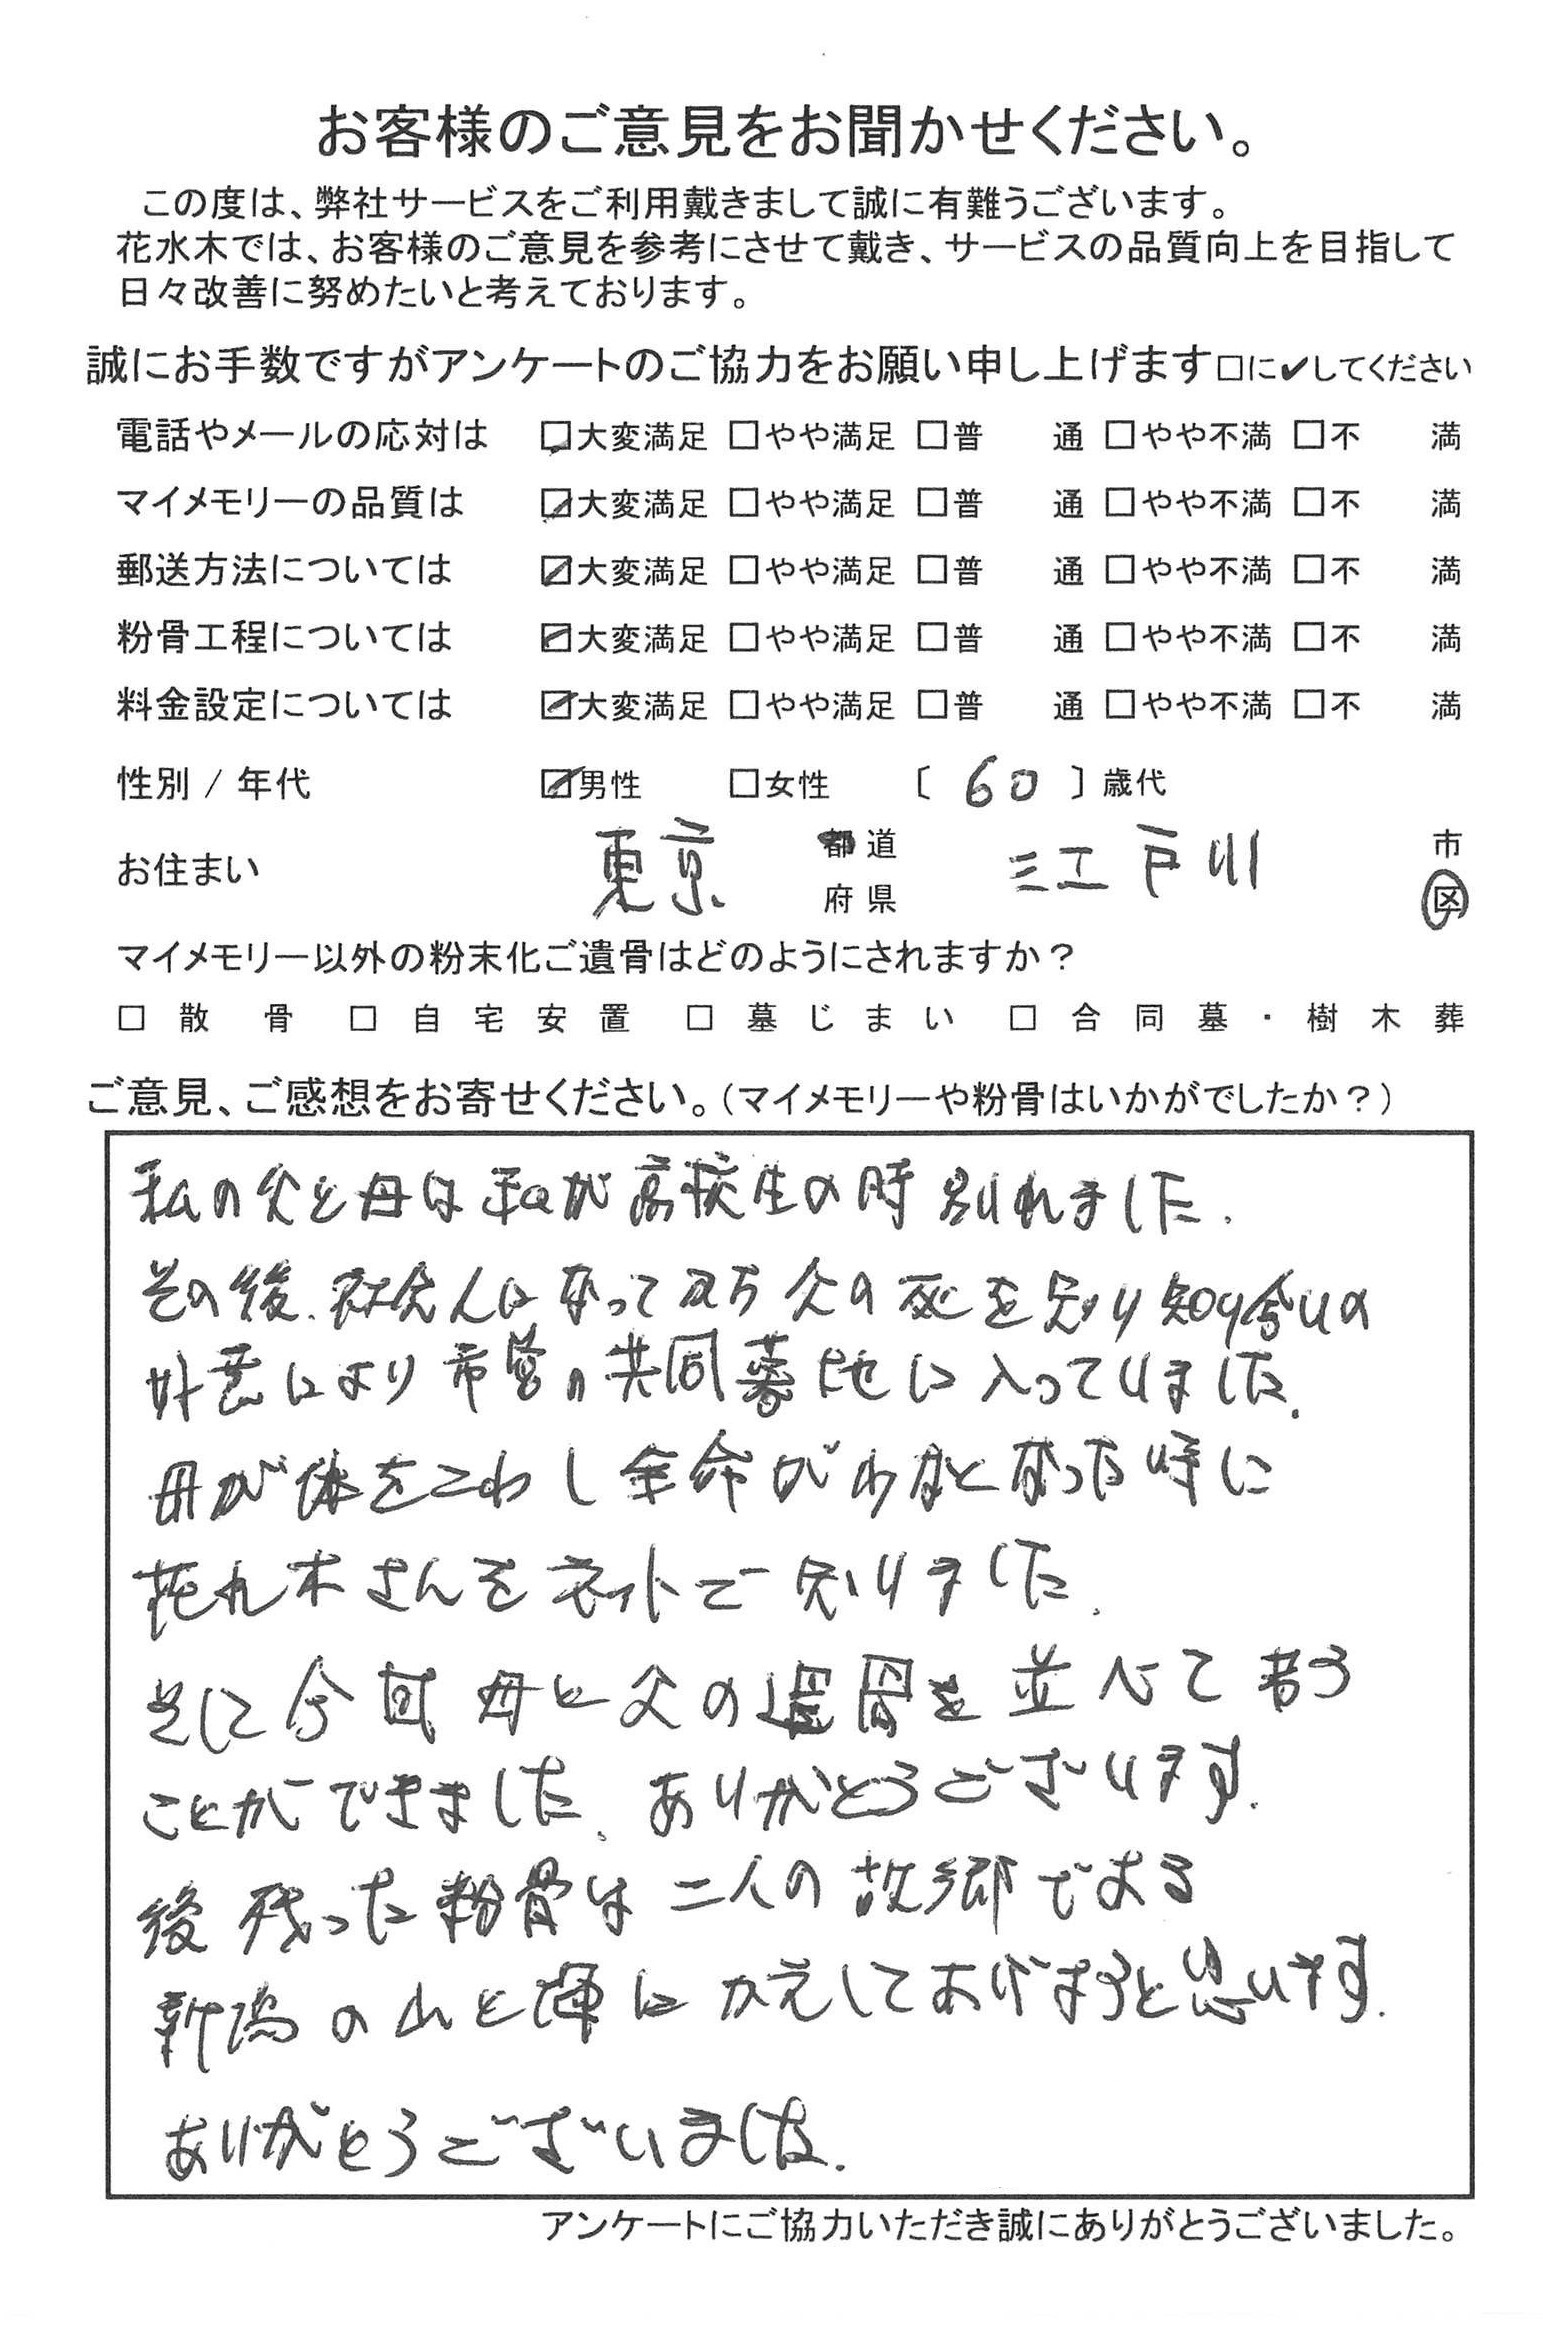 お客様のご意見をお聞かせください。
この度は、弊社サービスをご利用戴きまして誠に有難うございます。
花水木では、お客様のご意見を参考にさせて戴き、サービスの品質向上を目指して
日々改善に努めたいと考えております。
誠にお手数ですがアンケートのご協力をお願い申し上げます□に✔してください
電話やメールの応対は ☑大変満足 □やや満足 □普 通 □やや不満 □不 満
マイメモリーの品質は ☑大変満足 □やや満足 □普 通 □やや不満 □不 満
郵送方法については ☑大変満足 □やや満足 □普 通 □やや不満 □不 満
粉骨工程については ☑大変満足 □やや満足 □普 通 □やや不満 □不 満
料金設定については ☑大変満足 □やや満足 □普 通 □やや不満 □不 満
性別 / 年代 ☑男性 □女性 〔 60 〕歳代
お住まい 東京 都道府県 江戸川 市区
マイメモリー以外の粉末化ご遺骨はどのようにされますか？
□ 散骨 □ 自宅安置 □ 墓じまい □ 合同墓・樹木葬
ご意見、ご感想をお寄せください。(マイメモリーや粉骨はいかがでしたか？)
私の父と母は私が高校生の時別れました.
その後、社会人になって 父の死を知り知り合いの
により市営の共同墓地に入っていました.
母が体をこわし余命がわずかとなった時に
花水木さんをネットで知りました.
そして今回 母と父の遺骨を並べて
ことができました、ありがとうございます.
後残った粉骨は二人の故郷である
新潟の山と海にかえしてあげようと思います.
ありがとうございました.
アンケートにご協力いただき誠にありがとうございました。